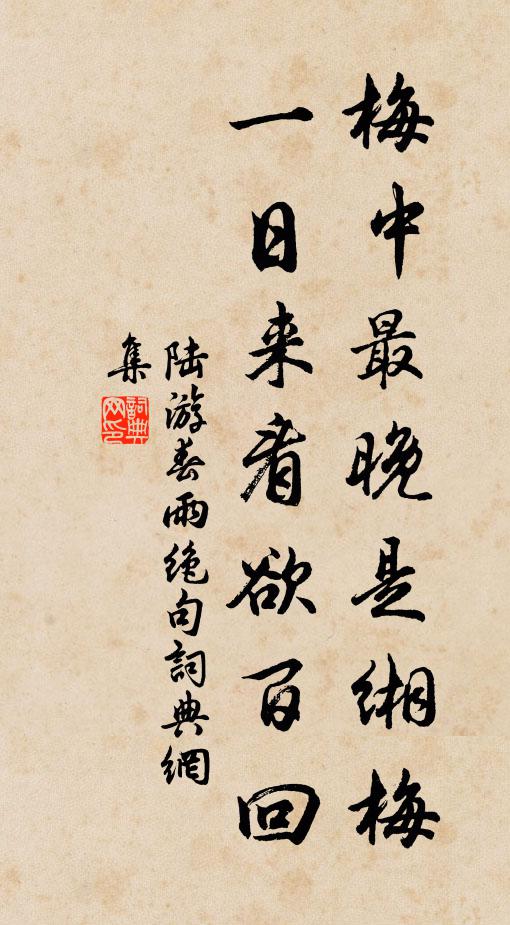 梅中最晚是缃梅
一日来看欲百回
陆游春雨绝句詞典網
集
詞典網印